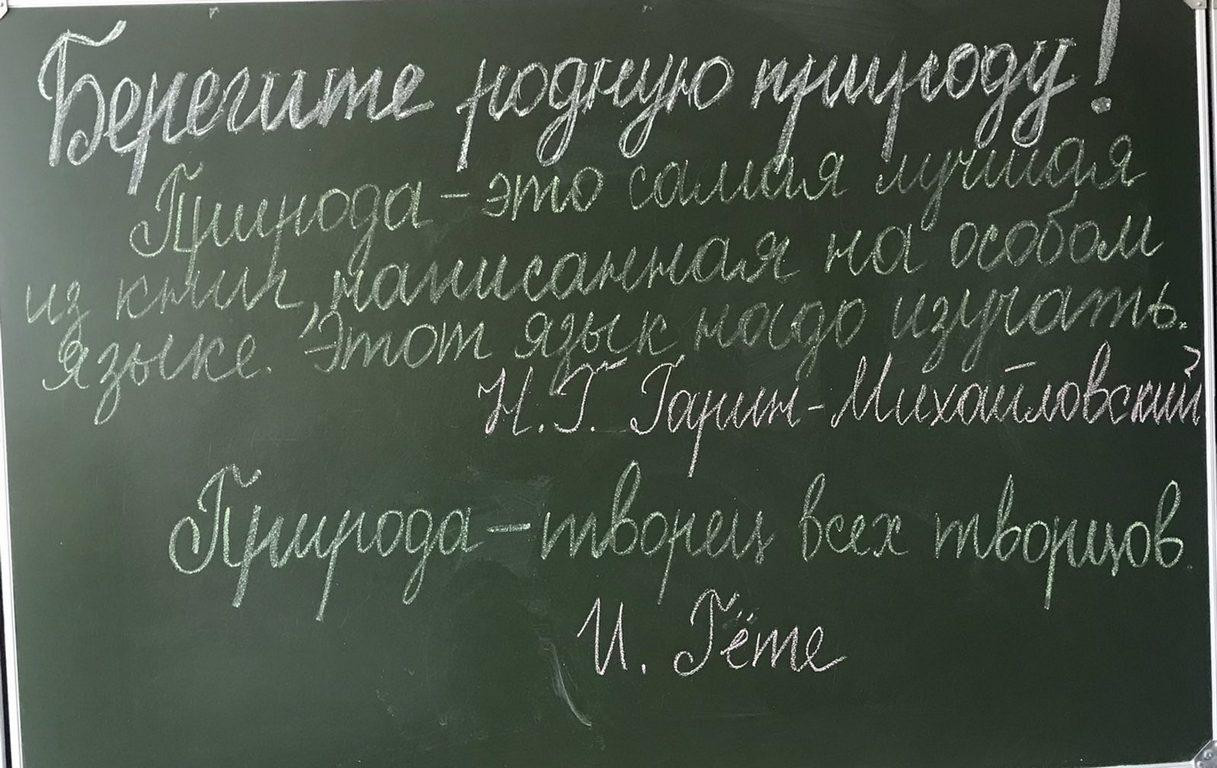 Берегите родную природу!
Природа – это самая лучшая
из книг, написанная на особом
языке. Этот язык надо изучать.
Н.Г. Гарин-Михайловский
Природа – творец всех творцов.
И. Гёте